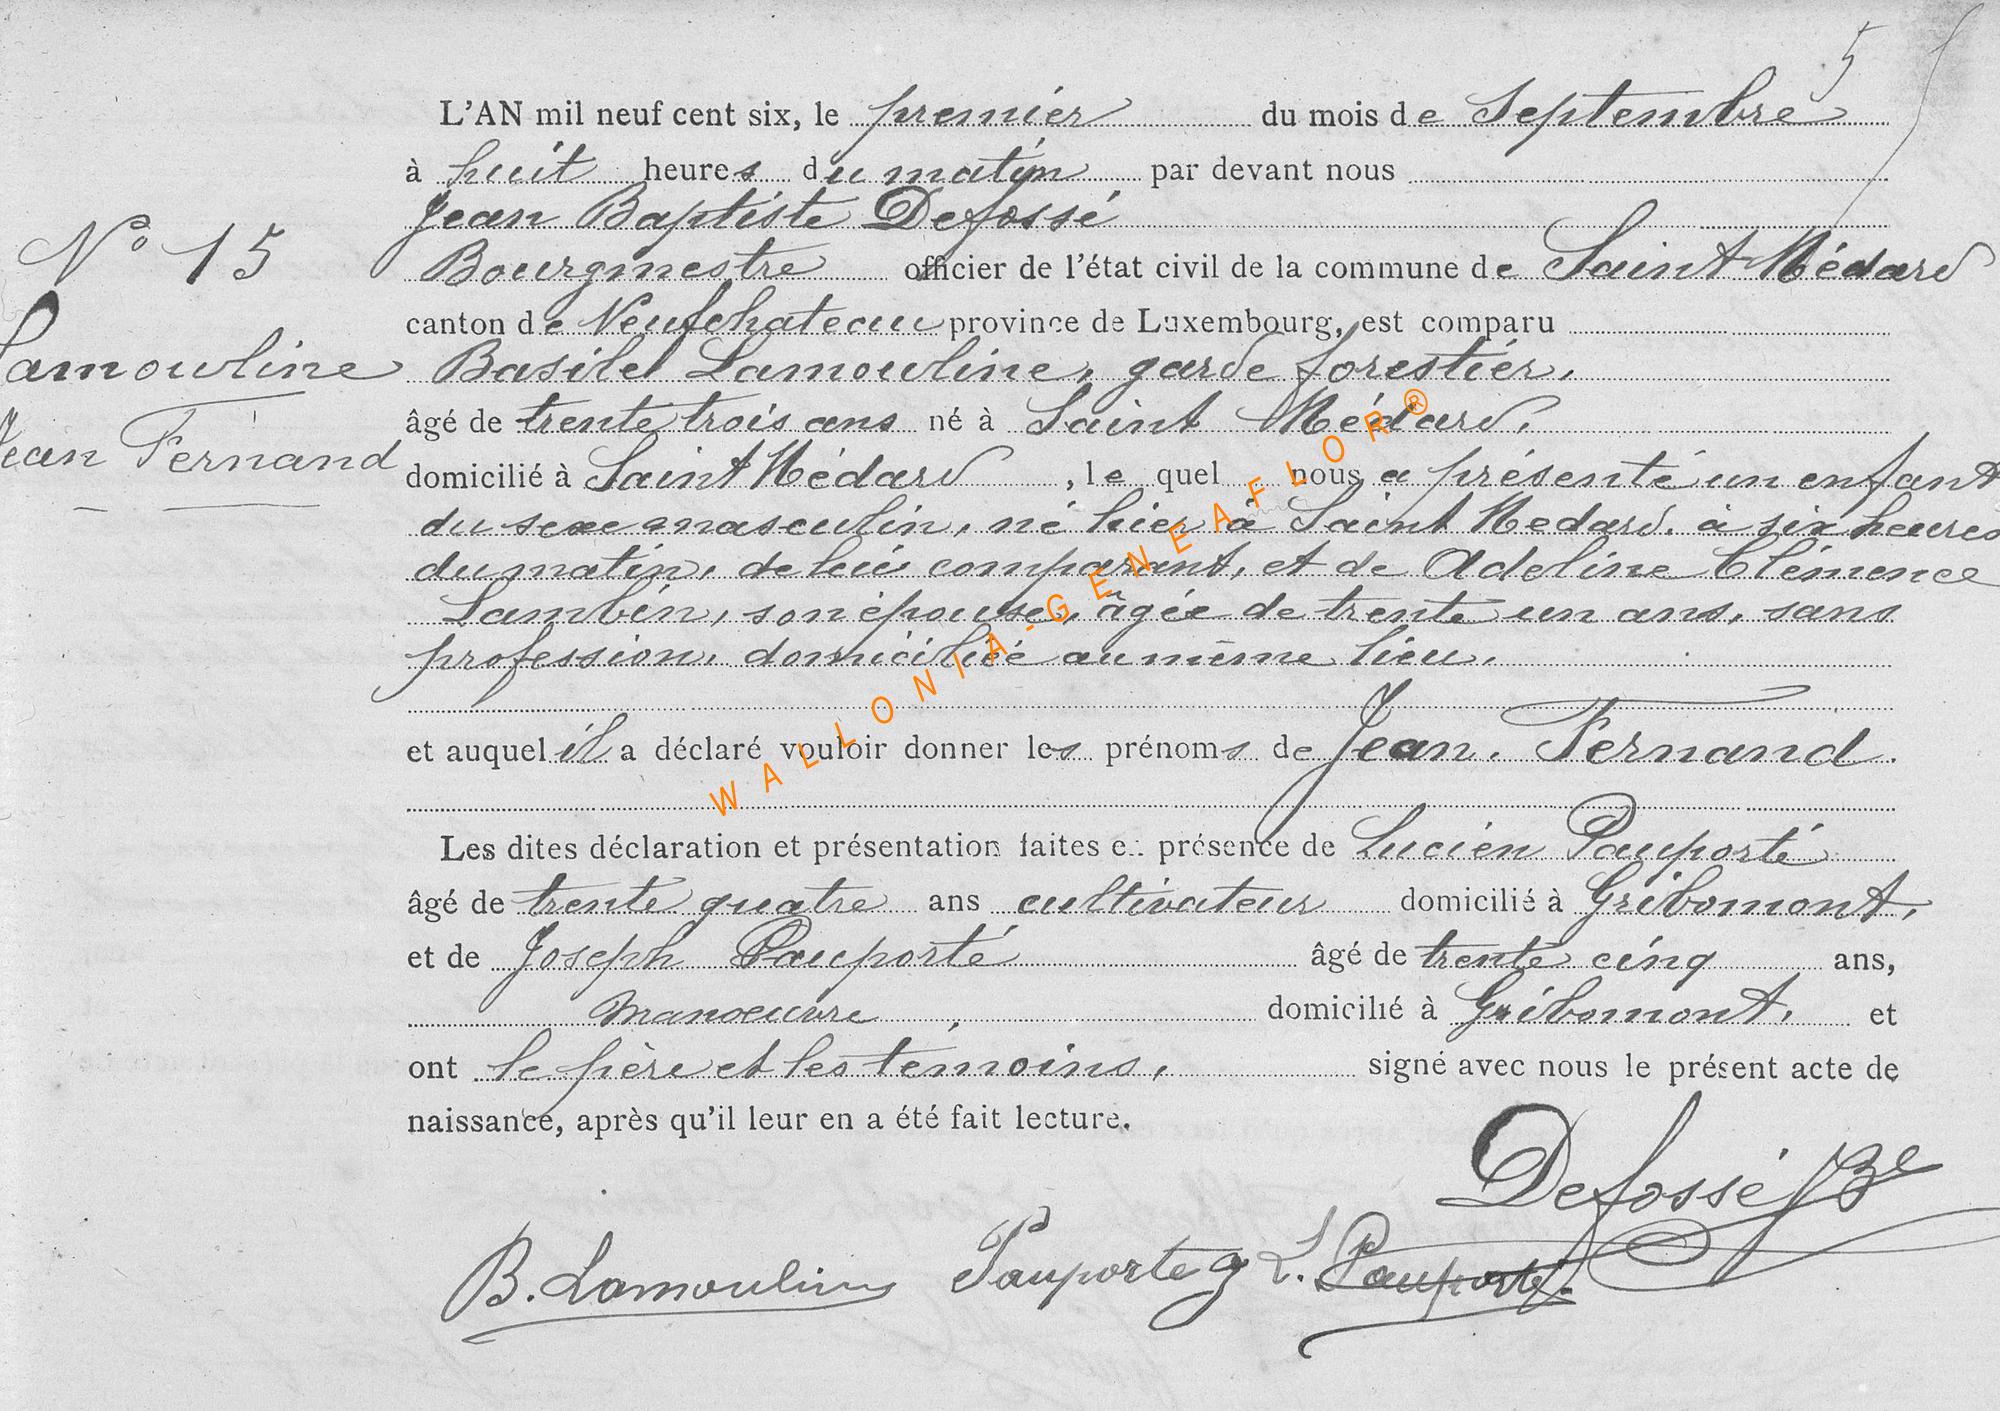 5
L'AN mil neuf cent six, le premier du mois de Septembre
à huit heures du matin par devant nous
Jean Baptiste Defossé
N° 15
Bourgmestre officier de l'état civil de la commune de Saint Médard
canton de Neufchateau province de Luxembourg, est comparu
Lamouline
Basile Lamouline, garde forestier,
âgé de trente trois ans né à Saint Médard,
Jean Fernand
domicilié à Saint Médard , le quel nous a présenté un enfant
du sexe masculin, né hier à Saint Medard, à six heures
du matin, de lui comparant, et de Adeline Clémence
Lambin, son épouse, âgée de trente un ans, sans
profession, domiciliée au même lieu.
et auquel il a déclaré vouloir donner les prénoms de Jean, Fernand.
Les dites déclaration et présentation faites e.. présence de Lucien Pauporté
âgé de trente quatre ans cultivateur domicilié à Gribomont,
et de Joseph Pauporté âgé de trente cinq ans,
manoeuvre , domicilié à Gribomont, et
ont le père et les temoins, signé avec nous le présent acte de
naissance, après qu'il leur en a été fait lecture.
Defossé JBe
B. Lamouline Pauporte J L. Pauporté.
WALLONIA-GENEAFLOR®